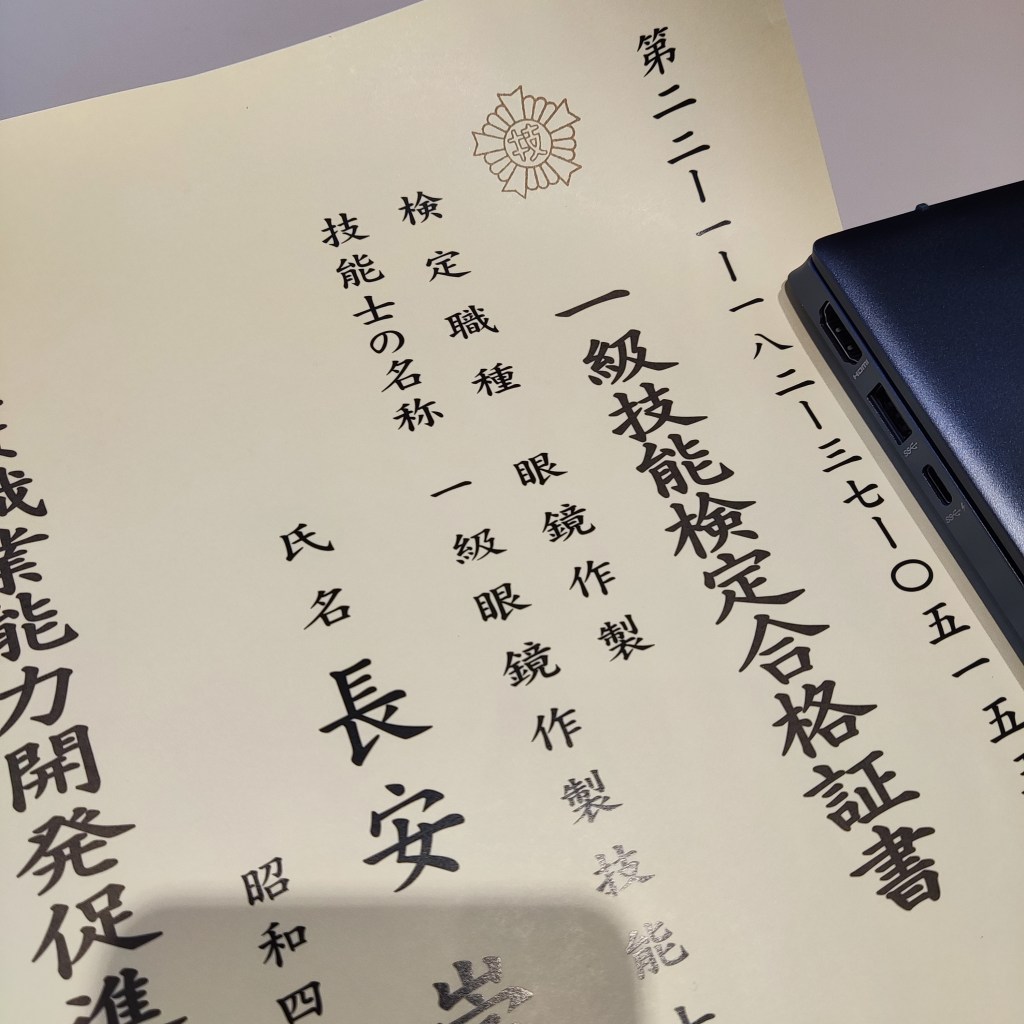 第二二ー一ー一八二ー三七ー〇五一五
一級技能検定合格証書
技
検定職種 眼鏡作製
技能士の名称 一級眼鏡作製技能士
氏名 長安
昭和四
職業能力開発促進
HDMI